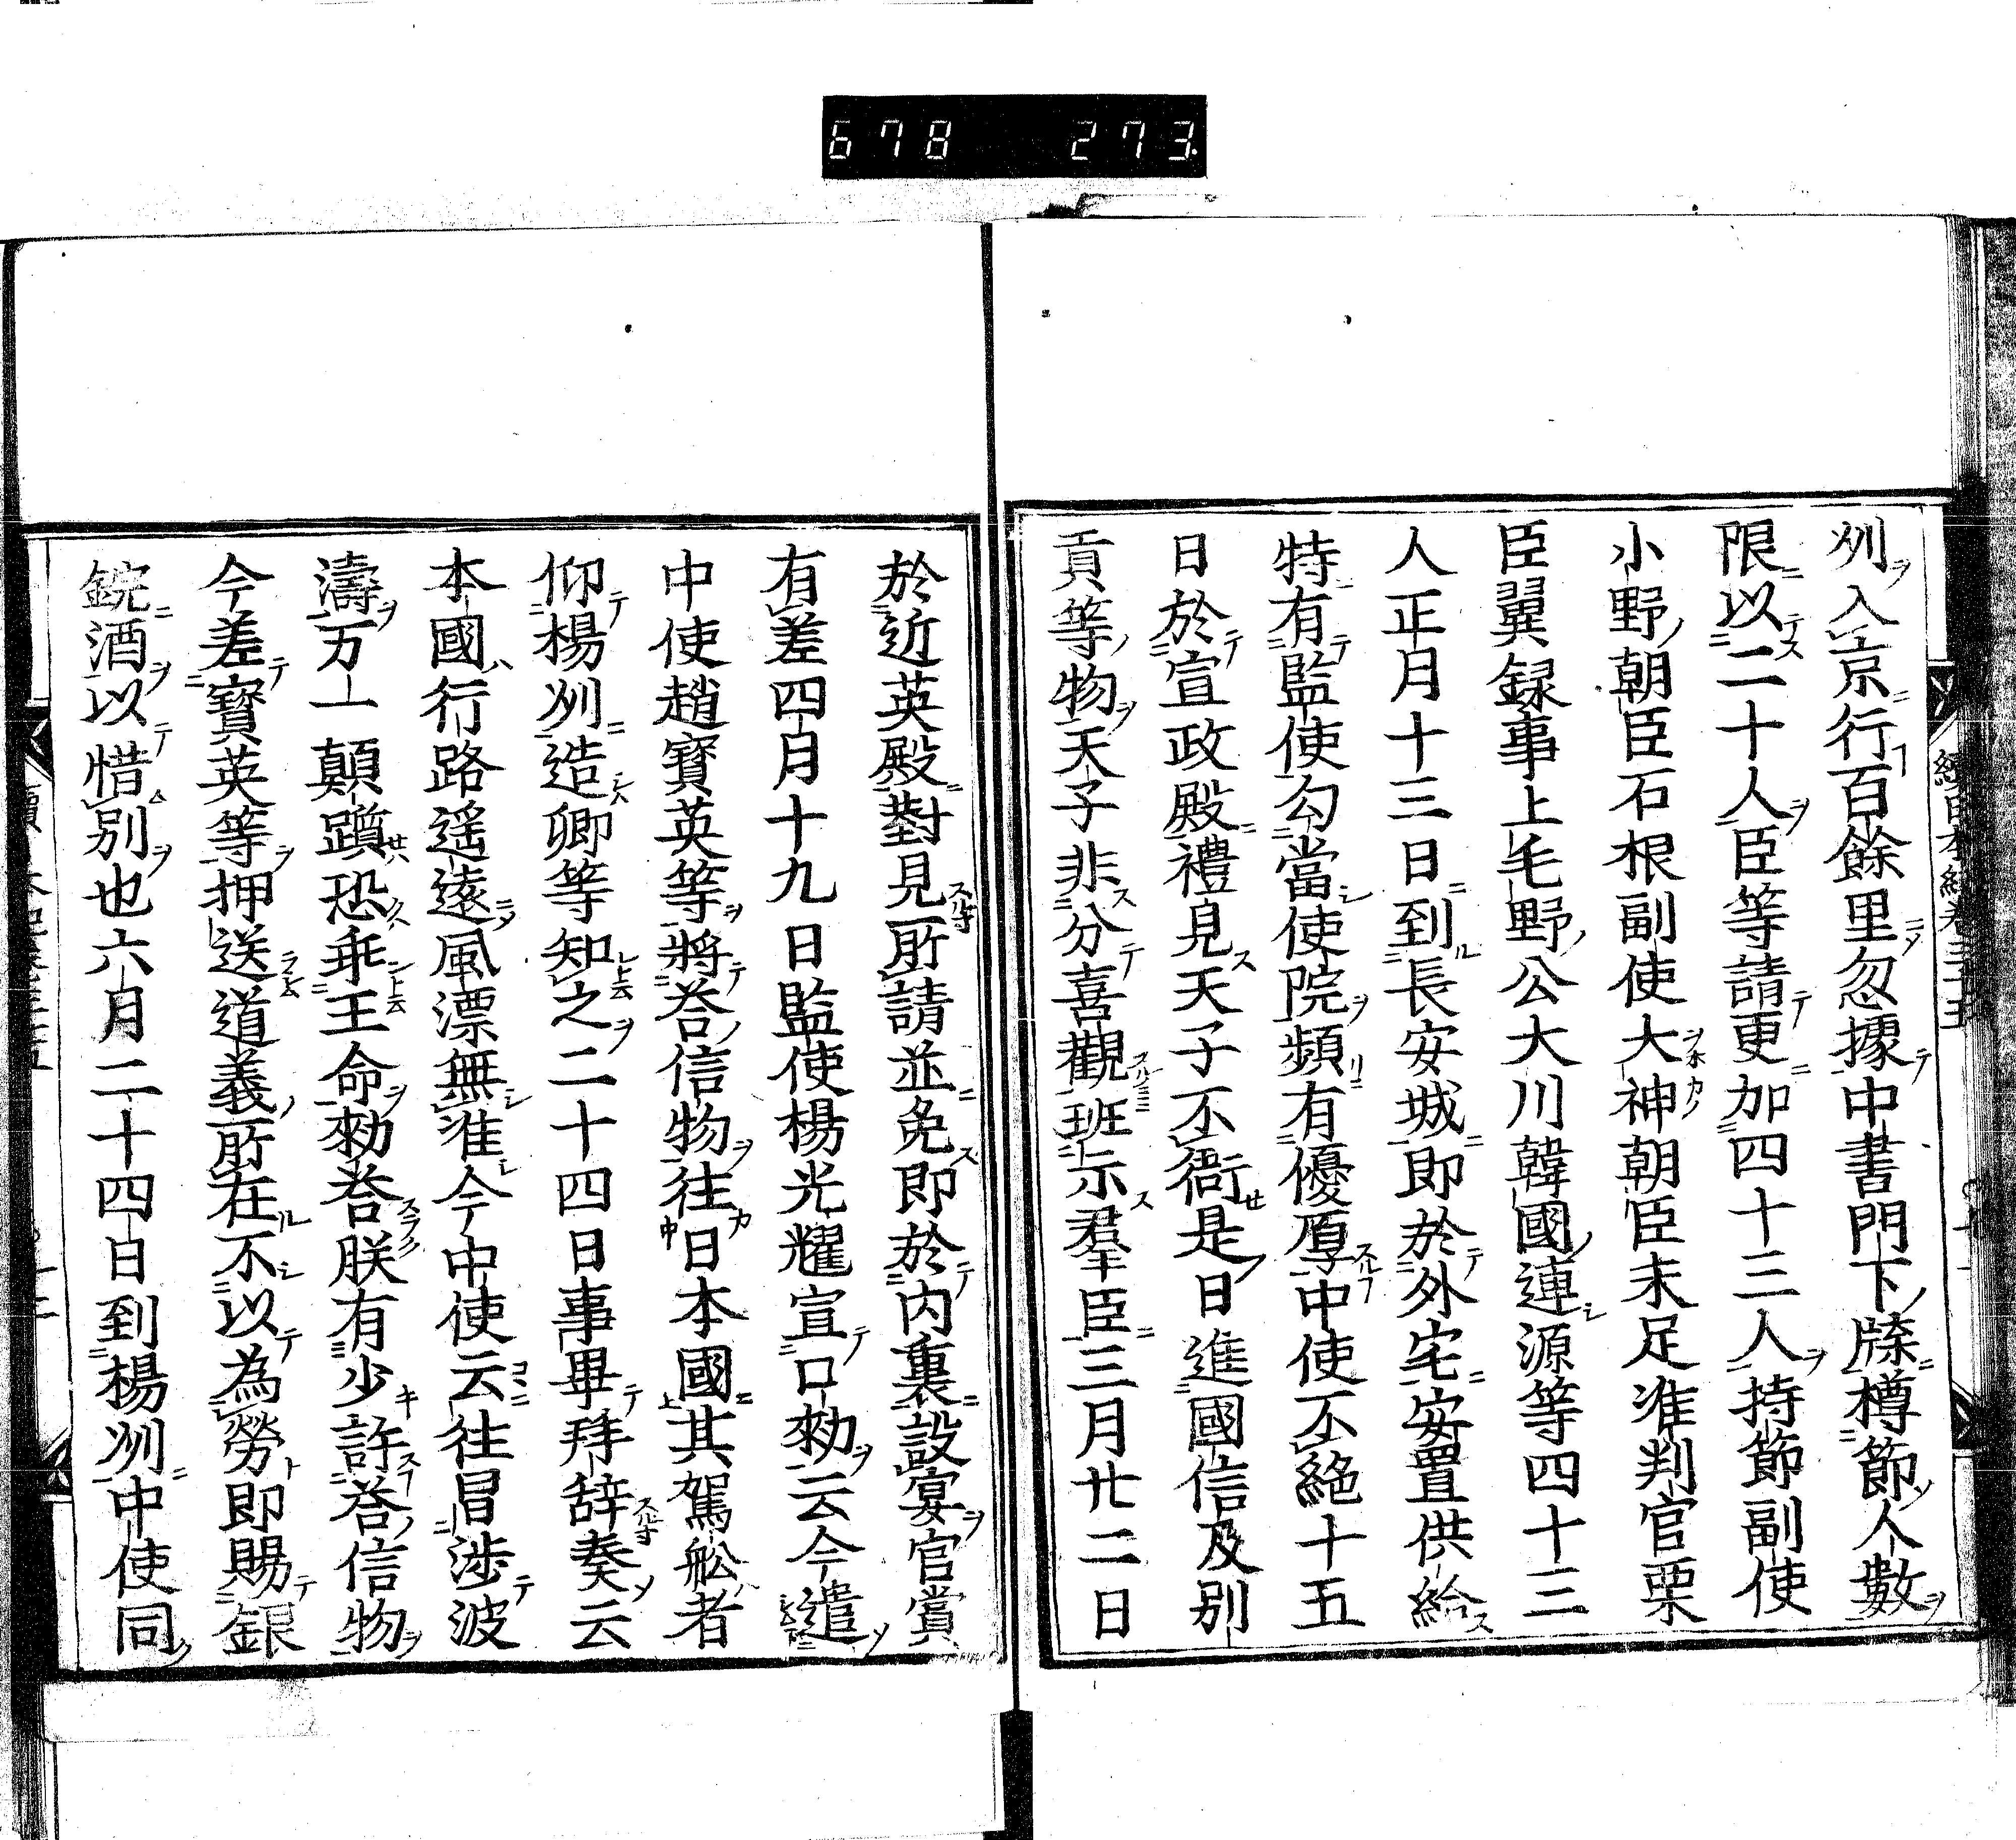 678 273
州入京行百餘里忽據中書門下牒樽節人數
限以二十人臣等請更加四十三人持節副使
小野朝臣石根副使大神朝臣末足准判官栗
臣翼録事上毛野公大川韓國連源等四十三
人正月十三日到長安城即於外宅安置供給
特有監使勾當使院頻有優厚中使不絶十五
日於宣政殿禮見天子不衙是日進國信及別
貢等物天子非分喜觀班示羣臣三月廿二日
於近英殿對見所請並免即於内裏設宴官賞
有差四月十九日監使楊光耀宣口勅云今遣
中使趙寶英等將荅信物徃日本國其駕舩者
仰楊州造卿等知之二十四日事畢拜辞奏云
本國行路遥遠風漂無准今中使云徃冒渉波
濤万一顛躓恐乖王命勅荅朕有少許荅信物
今差寶英等押送道義所在不以為勞即賜銀
鋺酒以惜別也六月二十四日到楊州中使同